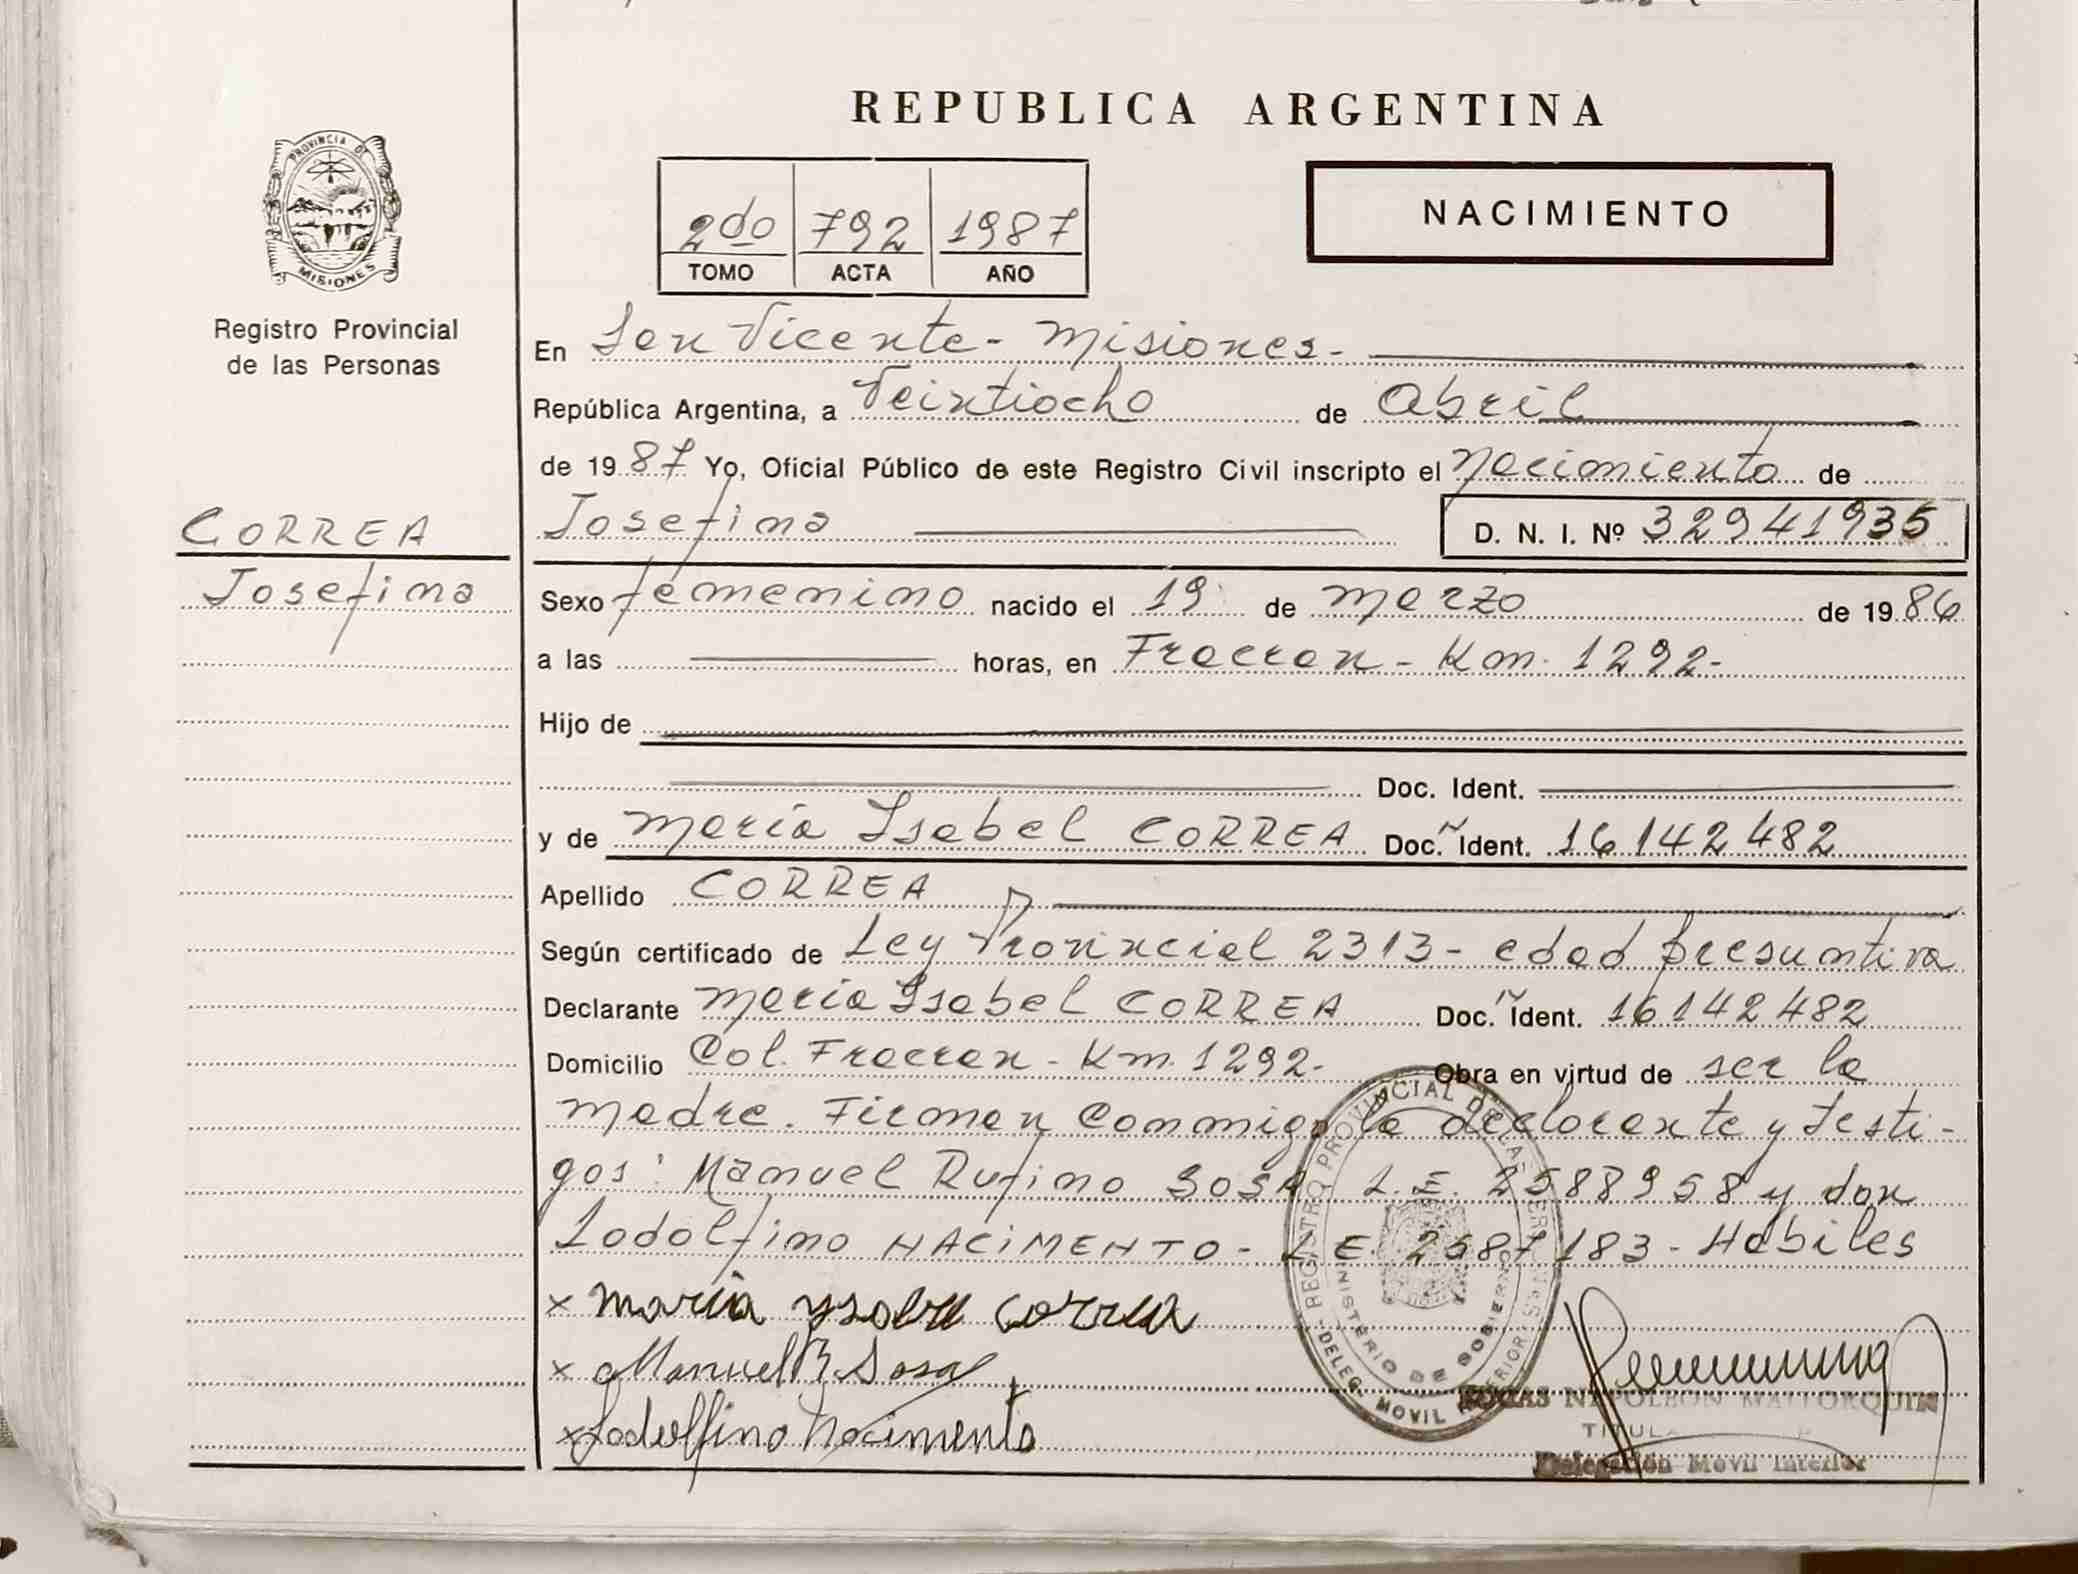 REPUBLICA ARGENTINA
PROVINCIA DE
MISIONES
Registro Provincial
de las Personas
2do 792 1987
TOMO ACTA AÑO
NACIMIENTO
En San Vicente - Misiones -
República Argentina, a Veintiocho de Abril
de 1987 Yo, Oficial Público de este Registro Civil inscripto el Nacimiento de
CORREA
Josefina
Josefina D. N. I. Nº 32941935
Sexo femenino nacido el 19 de Marzo de 1986
a las horas, en Fracran - Km. 1292-
Hijo de
Doc. Ident.
y de María Isabel CORREA Doc. Ident. 16142482
Apellido CORREA
Según certificado de Ley Provincial 2313 - edad presuntiva
Declarante María Isabel CORREA Doc. Ident. 16142482
Domicilio Col. Fracran - Km. 1292- Obra en virtud de ser la
madre. Firman Conmigo la declarante y testi-
gos: Manuel Rufino SOSA L.E. 2588958 y don
Lodolfino NACIMENTO - L.E. 2687183 - Habiles
x maria ysabel correa
x Manuel R Sosa
x Lodolfino Nacimento
REGISTRO PROVINCIAL DE LAS PERSONAS
MINISTERIO DE GOBIERNO
DELEG. MOVIL INTERIOR
NAPOLEON MALLORQUIN
TITULAR
Delegación Movil Interior